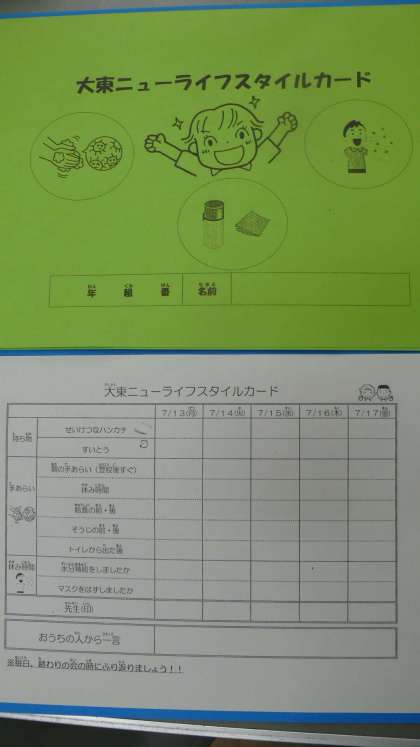 大東ニューライフスタイルカード
年 組 番 名前
大東ニューライフスタイルカード
7/13(月) 7/14(火) 7/15(水) 7/16(木) 7/17(金)
持ち物
せいけつなハンカチ
すいとう
手あらい
朝の手あらい(登校後すぐ)
休み時間
給食の前・後
そうじの前・後
トイレから出た後
休み時間
水分補給をしましたか
マスクをはずしましたか
先生(印)
おうちの人から一言
※毎日、終わりの会の時にふり返りましょう!!